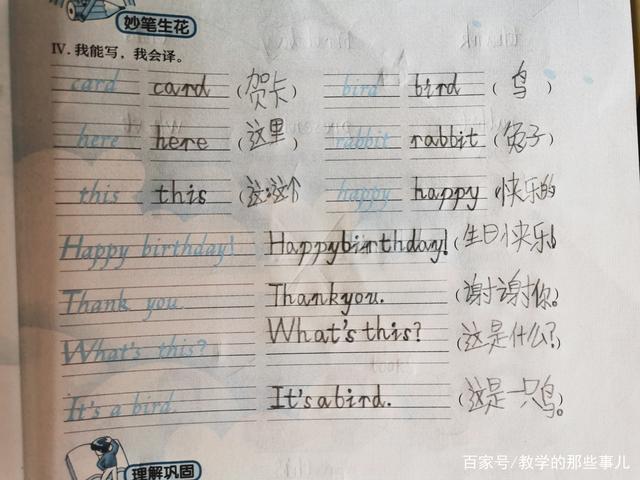 妙笔生花
Ⅳ. 我能写，我会译。
card card (贺卡) bird bird (鸟)
here here (这里) rabbit rabbit (兔子)
this this (这;这个) happy happy (快乐的
Happy birthday! Happybirthday! (生日快乐!
Thank you. Thankyou. (谢谢你。
What's this? What'sthis? (这是什么?)
It's a bird. It'sabird. (这是一只鸟。
理解巩固
百家号/教学的那些事儿